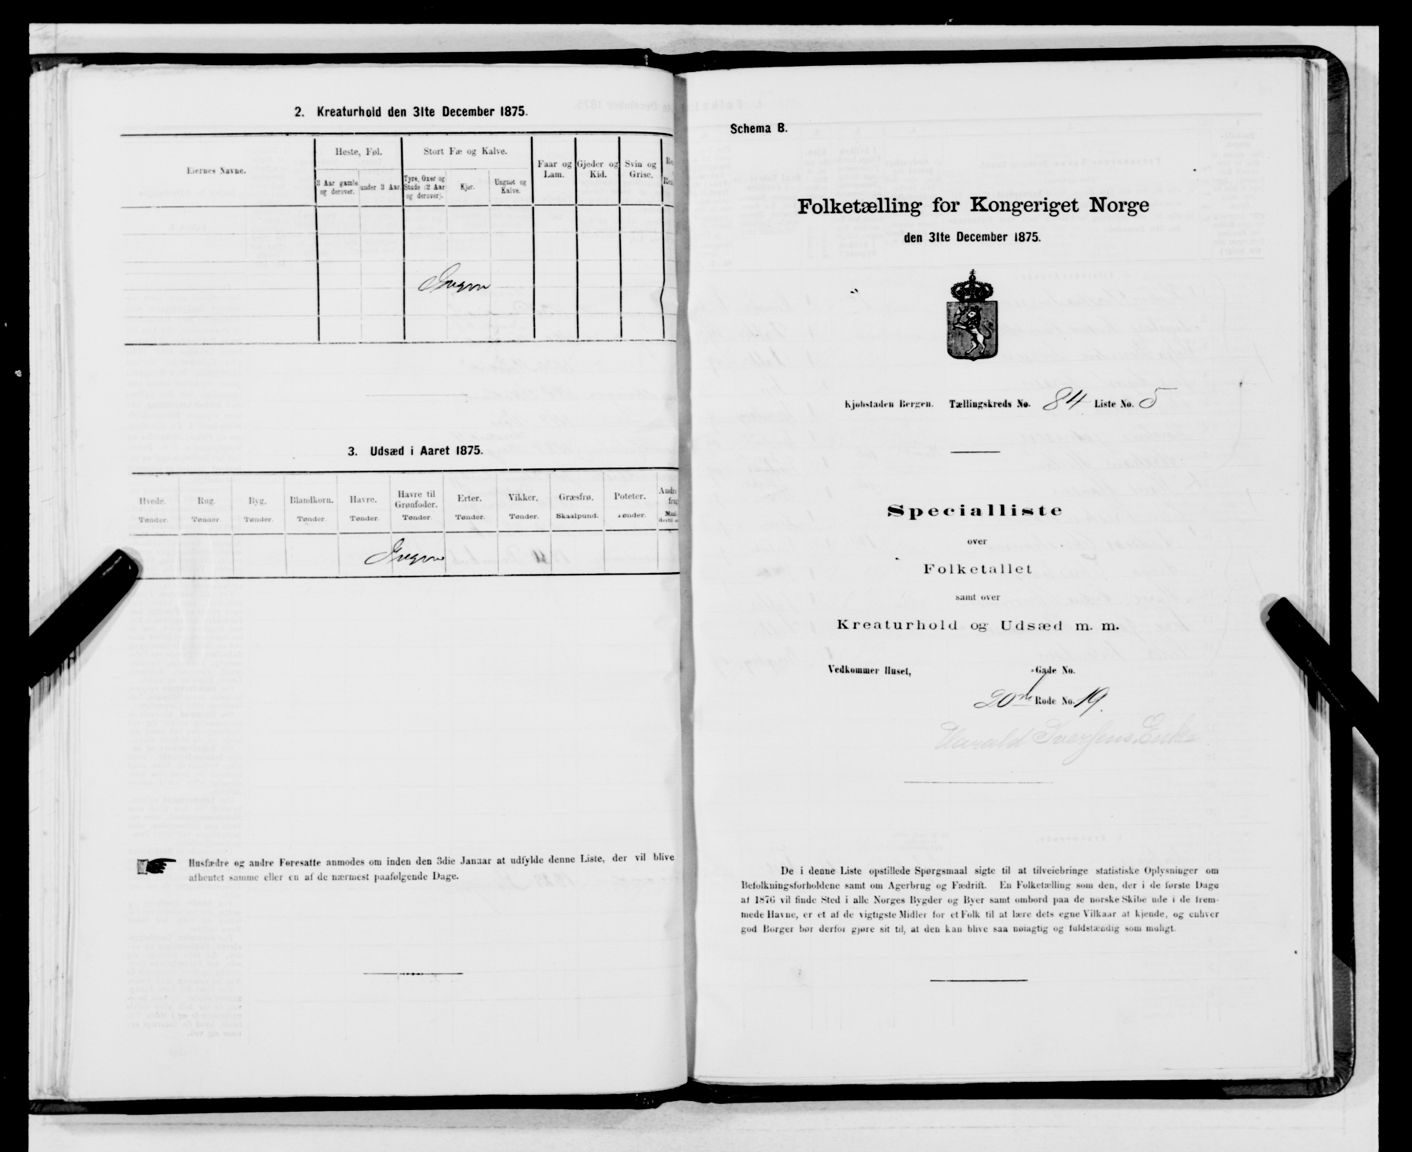 2. Kreaturhold den 31te December 1875.
Eiernes Navne.
Heste, Føl.
Stort Fæ og Kalve.
Faar og Lam.
Gjeder og Kid.
Svin og Grise.
3 Aar gamle og derover.
under 3 Aar.
Tyre, Oxer og Stude (2 Aar og derover).
Kjør.
Ungnøt og Kalve.
Ingen
3. Udsæd i Aaret 1875.
Hvede. Rug. Byg. Blandkorn. Havre. Havre til Grønfoder. Erter. Vikker. Græsfrø. Poteter.
Tønder. Tønder. Tønder. Tønder. Tønder. Tønder. Tønder. Tønder. Skaalpund. Tønder.
Ingen
Husfædre og andre Foresatte anmodes om inden den 3die Januar at udfylde denne Liste, der vil blive
afhentet samme eller en af de nærmest paafølgende Dage.
Schema B.
Folketælling for Kongeriget Norge
den 31te December 1875.
Kjøbstaden Bergen. Tællingskreds No. 84 Liste No. 5
Specialliste
over
Folketallet
samt over
Kreaturhold og Udsæd m. m.
Vedkommer Huset, Gade No.
20de Rode No. 19.
Harald Iversens Enke
De i denne Liste opstillede Spørgsmaal sigte til at tilveiebringe statistiske Oplysninger om
Befolkningsforholdene samt om Agerbrug og Fædrift. En Folketælling som den, der i de første Dage
af 1876 vil finde Sted i alle Norges Bygder og Byer samt ombord paa de norske Skibe ude i de frem-
mede Havne, er et af de vigtigste Midler for et Folk til at lære dets egne Vilkaar at kjende, og enhver
god Borger bør derfor gjøre sit til, at den kan blive saa nøiagtig og fuldstændig som muligt.